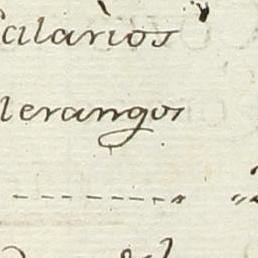 Salarios
lerangos
----------- "2